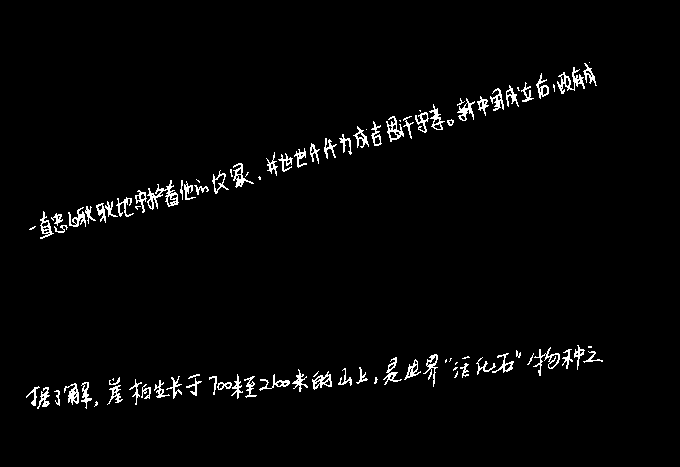 一直忠心耿耿地守护着他的坟冢，并世世代代为成吉思汗守孝。新中国成立后，政府成
据了解，崖柏生长于700米至2100米的山上，是世界“活化石”物种之